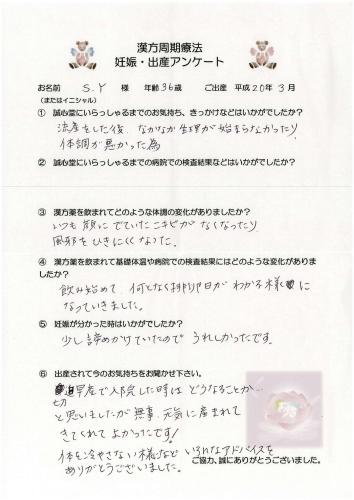 漢方周期療法
妊娠・出産アンケート
お名前 S.Y 様 年齢36歳 ご出産 平成20年3月
(またはイニシャル)
① 誠心堂にいらっしゃるまでのお気持ち、きっかけなどはいかがでしたか?
流産をした後、なかなか生理が始まらなかったり
体調が悪かった為
② 誠心堂にいらっしゃるまでの病院での検査結果などはいかがでしたか?
③ 漢方薬を飲まれてどのような体調の変化がありましたか?
いつも顔にでていたニキビがなくなったり
風邪をひきにくくなった。
④ 漢方薬を飲まれて基礎体温や病院での検査結果にはどのような変化がありましたか?
飲み始めて、何となく排卵日がわかる様に
なっていきました。
⑤ 妊娠が分かった時はいかがでしたか?
少し諦めかけていたので うれしかったです。
⑥ 出産されて今のお気持ちをお聞かせ下さい。
切迫早産で入院した時は どうなることか…
と思いましたが無事、元気に産まれて
きてくれて よかったです!
体を冷やさない様など いろんなアドバイスを
ありがとうございました。
ご協力、誠にありがとうございました。